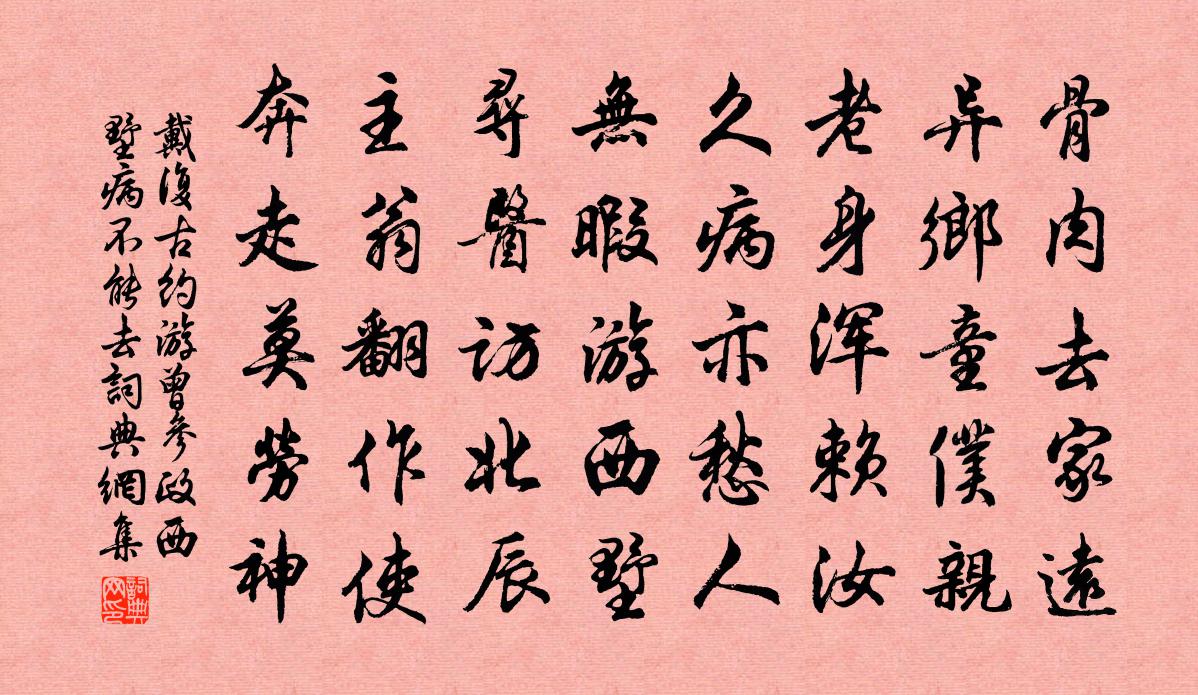 骨肉去家遠
异鄉童僕親
老身渾賴汝
久病亦愁人
無暇游西墅
尋醫訪北辰
主翁翻作使
奔走莫勞神
戴復古約游曾參政西
墅病不能去詞典網集
詞典网印